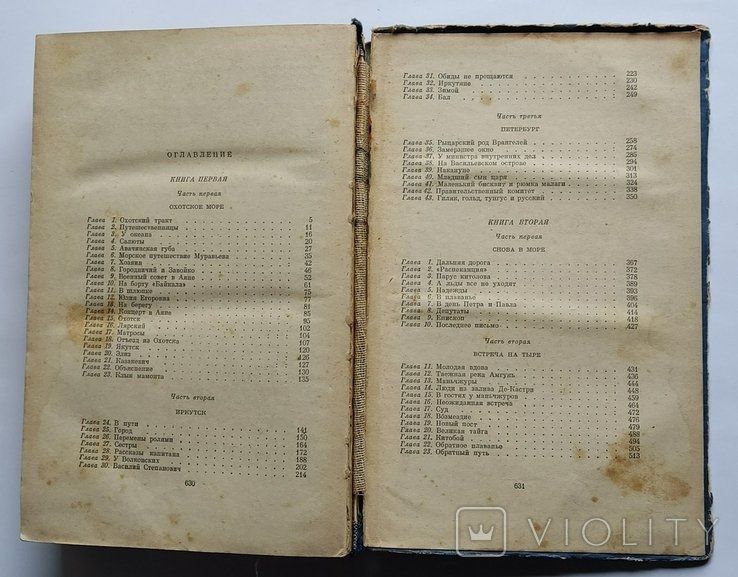 ОГЛАВЛЕНИЕ
КНИГА ПЕРВАЯ
Часть первая
ОХОТСКОЕ МОРЕ
Глава 1. Охотский тракт 5
Глава 2. Путешественницы 11
Глава 3. У океана 16
Глава 4. Салюты 20
Глава 5. Авачинская губа 27
Глава 6. Морское путешествие Муравьева 35
Глава 7. Хозяин 42
Глава 8. Городничий в Завойко 46
Глава 9. Военный совет в Аяне 52
Глава 10. На борту «Байкала» 61
Глава 11. В шлюпке 75
Глава 12. Юлия Егоровна 77
Глава 13. На берегу 81
Глава 14. Концерт в Аяне 85
Глава 15. Охотск 95
Глава 16. Лярский 102
Глава 17. Матросы 104
Глава 18. Отъезд из Охотска 107
Глава 19. Якутск 120
Глава 20. Элиз 126
Глава 21. Казакевич 127
Глава 22. Объяснение 130
Глава 23. Клык мамонта 135
Часть вторая
ИРКУТСК
Глава 24. В пути
Глава 25. Город 141
Глава 26. Перемены ролями 150
Глава 27. Сестры 164
Глава 28. Рассказы капитана 172
Глава 29. У Волконских 188
Глава 30. Василий Степанович 202
214
630
Глава 31. Обиды не прощаются 223
Глава 32. Иркутяне 230
Глава 33. Зимой 242
Глава 34. Бал 249
Часть третья
ПЕТЕРБУРГ
Глава 35. Рыцарский род Врангелей 258
Глава 36. Замерзшее окно 274
Глава 37. У министра внутренних дел 285
Глава 38. На Васильевском острове 294
Глава 39. Накануне 301
Глава 40. Младший сын царя 313
Глава 41. Маленький бисквит и рюмка малаги 324
Глава 42. Правительственный комитет 338
Глава 43. Гиляк, гольд, тунгус и русский 350
КНИГА ВТОРАЯ
Часть первая
СНОВА В МОРЕ
Глава 1. Дальняя дорога 367
Глава 2. «Распеканция» 372
Глава 3. Парус китолова 378
Глава 4. А льды все не уходят 389
Глава 5. Надежды 393
Глава 6. В плаванье 396
Глава 7. В день Петра и Павла 404
Глава 8. Депутаты 414
Глава 9. Епископ 418
Глава 10. Последнее письмо 427
Часть вторая
ВСТРЕЧА НА ТЫРЕ
Глава 11. Молодая вдова 431
Глава 12. Таежная река Амгунь 436
Глава 13. Маньчжуры 444
Глава 14. Люди из залива Де-Кастри 448
Глава 15. В гостях у маньчжуров 459
Глава 16. Неожиданная встреча 464
Глава 17. Суд 472
Глава 18. Возмездие 476
Глава 19. Новый пост 479
Глава 20. Великая тайга 488
Глава 21. Китобой 494
Глава 22. Обратное плаванье 505
Глава 23. Обратный путь 513
631
VIOLITY